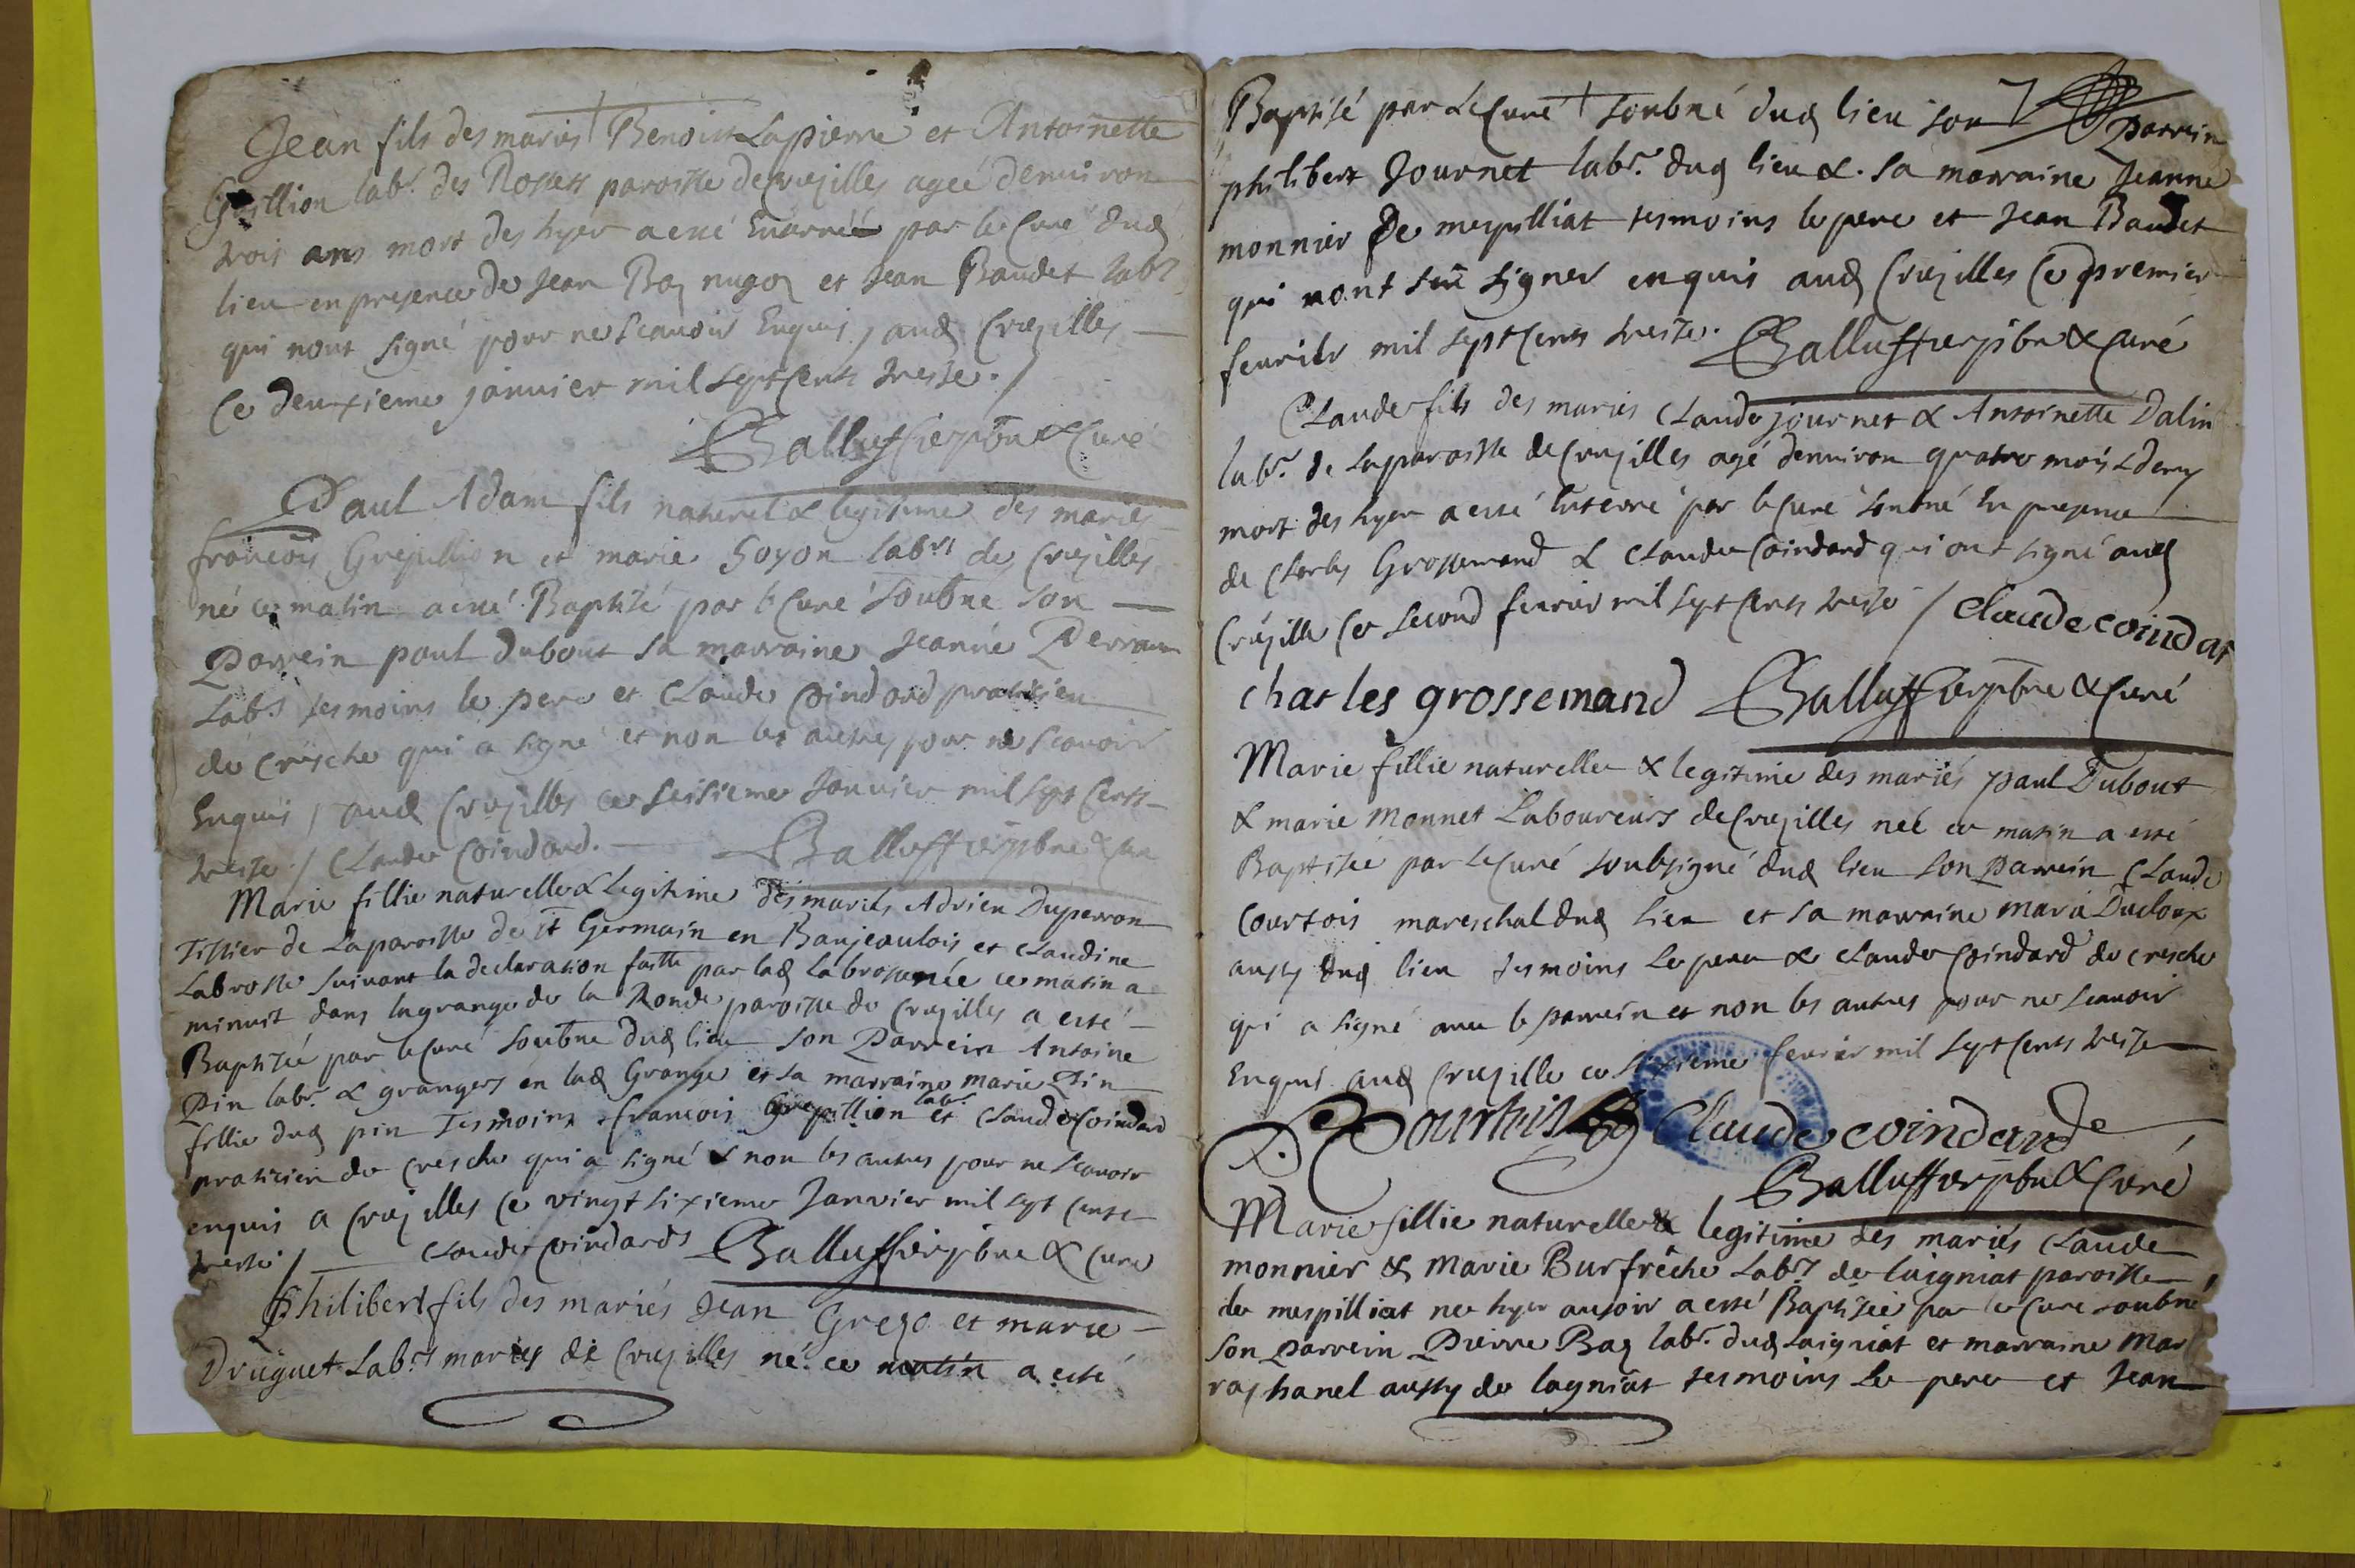 Jean fils des mariés Benoist Lapierre et Antoinette
labr. des paroisse de Crusilles ageé denuiron
trois ans mort des hyer a esté Enterré par le Curé dud
lieu en presence de Jean Bay et Jean Baudet labr
qui nont signé pour ne scauoir Enquis, aud Crusilles
Ce deuxieme januier mil sept Cents treise. /
& Curé
Paul Adam fils naturel & legitime des mariés
francois Grepillion et marie Goyon labrs de Crusilles
né ce matin a esté Baptisé par le Curé soubne son
Parrein paul Dubout sa marraine Jeanne Perraud
Labrs tesmoins le pere et Claude Coindard praticien
de Cresche qui a signé et non les autres pour ne scauoir
Enquis / aud Crusilles ce seisieme Januier mil sept Cents
treise / Claude Coindard.
Marie fillie naturelle & legitime des mariés Adrien Duperron
Tissier de la paroisse de st Germain en Baujeaulois et Claudine
Labrosse suiuant la declaration faitte par lad Labrosse née ce matin a
minuit dans la grange de la Ronde paroisse de Crusilles a esté
Baptisée par le Curé soubne dud lieu son Parrein Antoine
Pin labr. & grangers en lad Grange et sa marraine marie Pin
fillie dud pin Tesmoins francois Grepillion labr. et Claude Coindard
praticien de Cresche qui a signé & non les autres pour ne scauoir
enquis a Crusilles Ce vingt sixieme Januier mil sept Cents
treise / Claude Coindards & Curé
Philibert fils des mariés Jean Grego et marie
Druguet Labrs mariés de Crusilles né ce matin a esté
Baptisé par le Curé soubné dud lieu son Parrein
philibert Journet labr. dud lieu & sa marraine Jeanne
monnier De mespilliat tesmoins le pere et Jean Baudet
qui nont sceu signer enquis aud Crusilles Ce premier
feurier mil sept Cents treise. & Curé
Claude fils des mariés Claude journet & Antoinette Dalin
labr. de la paroisse de Crusilles agé denuiron quatre mois & demy
mort des hyer a esté Enterré par le Curé soubné En presence
de Charles Grossemand & Claude Coindard qui ont signé aud
Crusille Ce second feurier mil sept Cents treise / Claude coindar
charles grossemand & Curé
Marie fillie naturelle & legitime des mariés paul Dubout
& marie Monnet Laboureurs de Crusilles neé ce matin a esté
Baptisée par le Curé soubsigné dud lieu son Parrein Claude
Courtois mareschal dud lieu et sa marraine marie Ducloux
aussy dud lieu tesmoins le pere & Claude Coindard de cresche
qui a signé auec le parrein et non les autres pour ne scauoir
Enquis aud Crusille ce sixieme feurier mil sept Cents treise
Courtois Claude coindard
& Curé
Marie fillie naturelle & legitime des mariés Claude
monnier & Marie Burfrêche Labrs de laigniat paroisse
de mespilliat neé hyer ausoir a esté Baptisée par le Curé soubné
son parrein Pierre Bay labr. dud Laigniat et marraine Mar
raphanel aussy de lagniat tesmoins Le pere et Jean